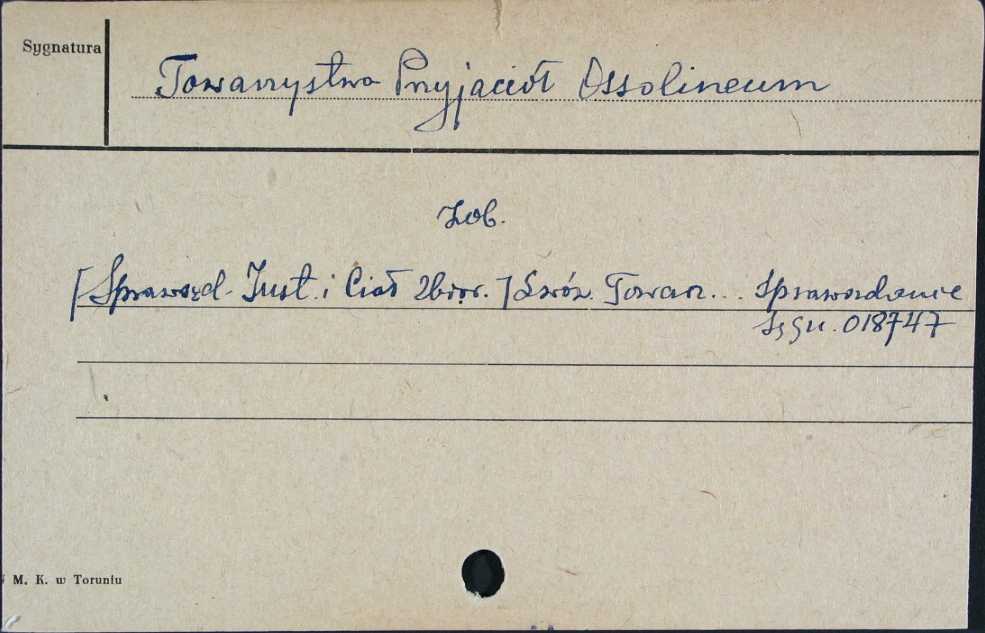 Sygnatura
Towarzystwo Przyjaciół Ossolineum
Zob.
[Sprawozd. Inst. i Ciał Zbior.] Lwów. Towarz... Sprawozdanie
Sygn. 018747
M. K. w Toruniu